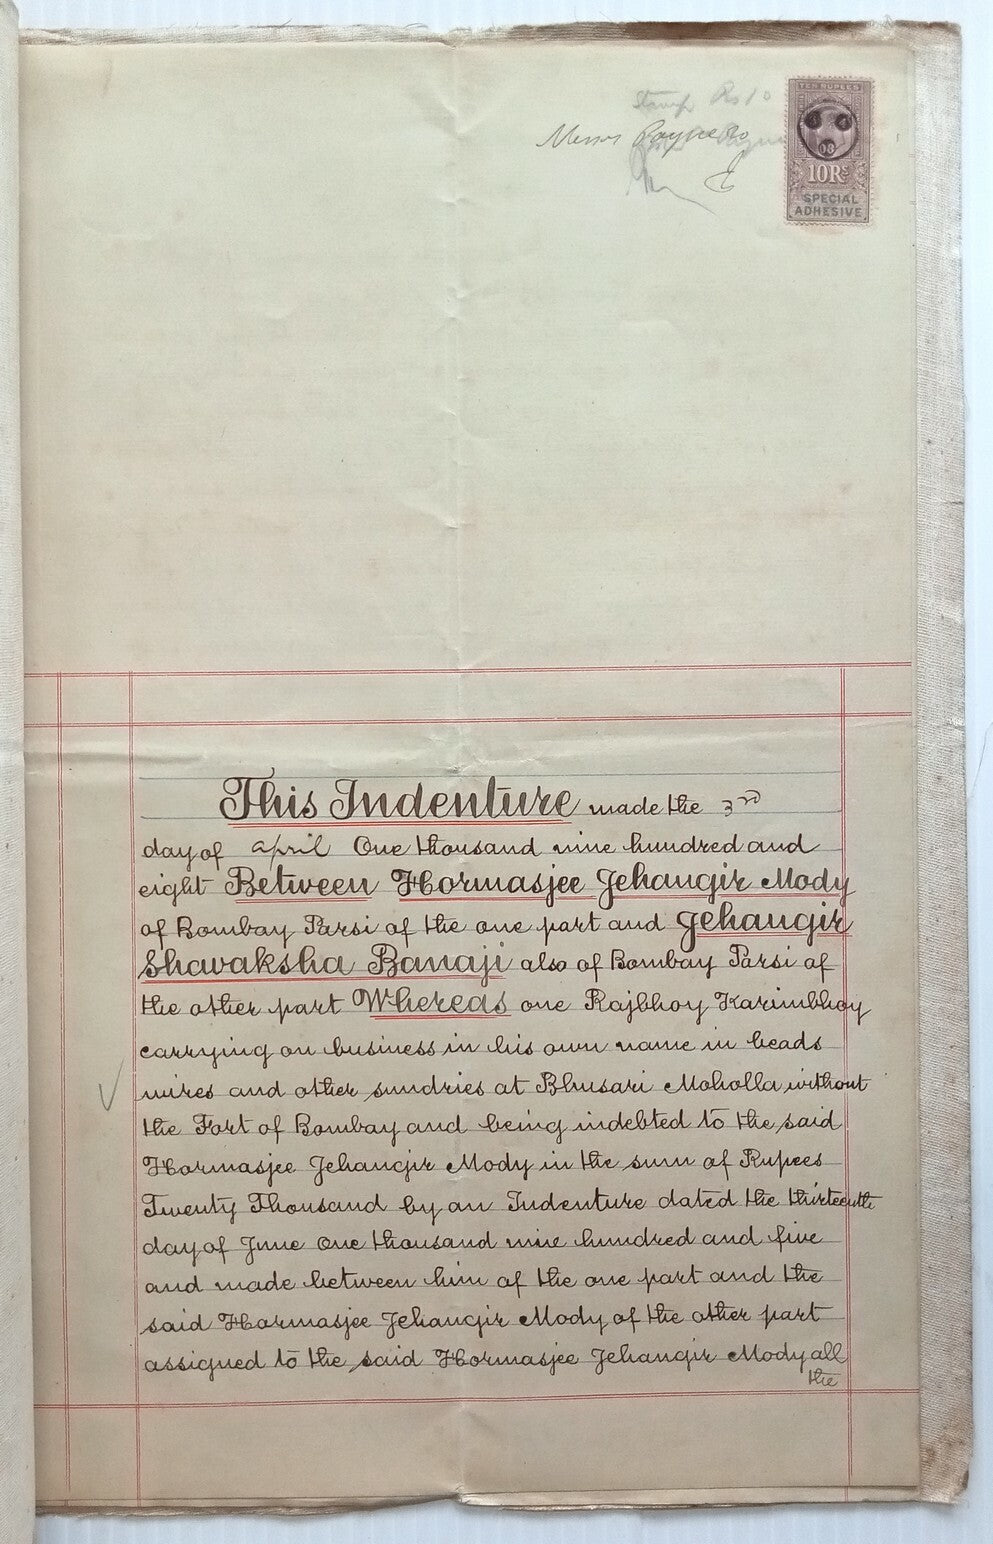 Stamp Rs 10
Messrs Payne &
TEN RUPEES
08
10Rs
SPECIAL
ADHESIVE
This Indenture made the 3rd
day of april One thousand nine hundred and
eight Between Hormasjee Jehangir Mody
of Bombay Parsi of the one part and Jehangir
Shavaksha Banaji also of Bombay Parsi of
the other part Whereas one Rajbhoy Karimbhoy
carrying on business in his own name in beads
wires and other sundries at Bhusari Moholla without
the Fort of Bombay and being indebted to the said
Hormasjee Jehangir Mody in the sum of Rupees
Twenty Thousand by an Indenture dated the thirteenth
day of June One thousand nine hundred and five
and made between him of the one part and the
said Hormasjee Jehangir Mody of the other part
assigned to the said Hormasjee Jehangir Mody all
the